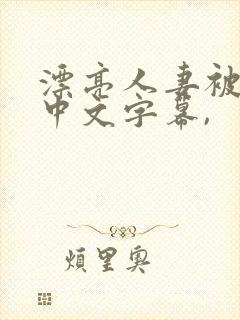 漂亮人妻被
中文字幕,
烦里奥